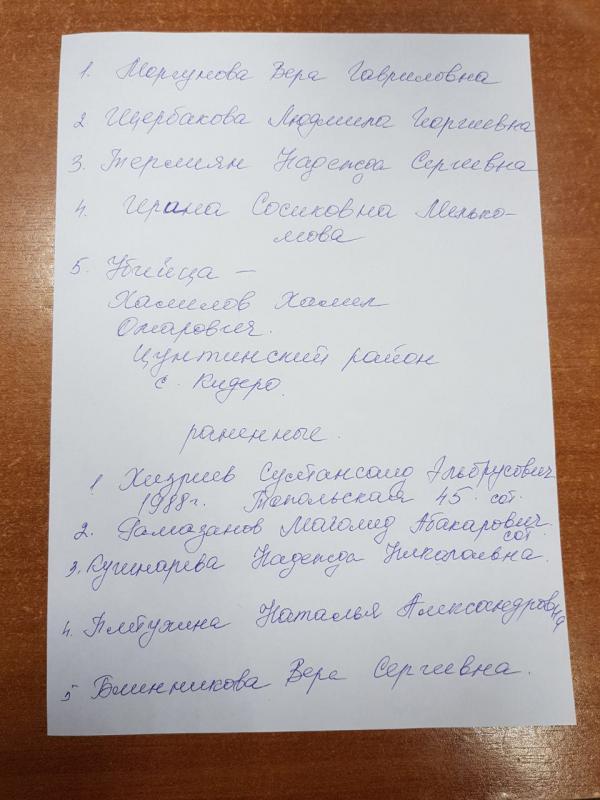 1. Моргунова Вера Гавриловна
2 Щербакова Людмила Георгиевна
3. Терлиян Надежда Сергеевна
4. Ирана Сосиковна Мелько-
мова
5. Убийца —
Халилов Халил
Омарович.
Цунтинский район
с. Кидеро.
раненные.
1 Хизриев Султансаид Эльбрусович
1988г. Топольская 45. сот.
2. Рамазанов Магомед Абакарович.
сот
3. Кушнарева Надежда Николаевна.
4. Петухина Наталья Александровна
5 Блинникова Вера Сергеевна.